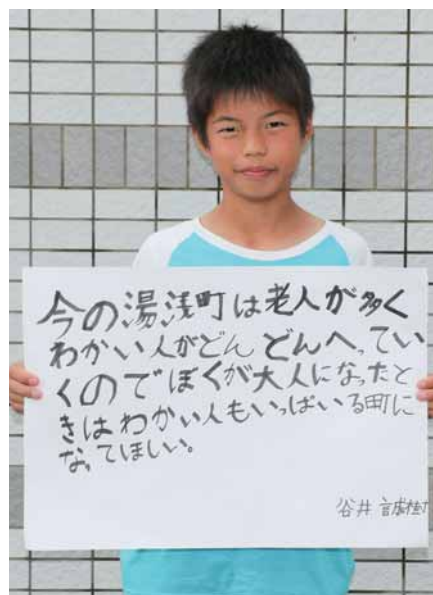 今の湯浅町は老人が多く
わかい人がどんどんへってい
くのでぼくが大人になったと
きはわかい人もいっぱいる町に
なってほしい。
谷井